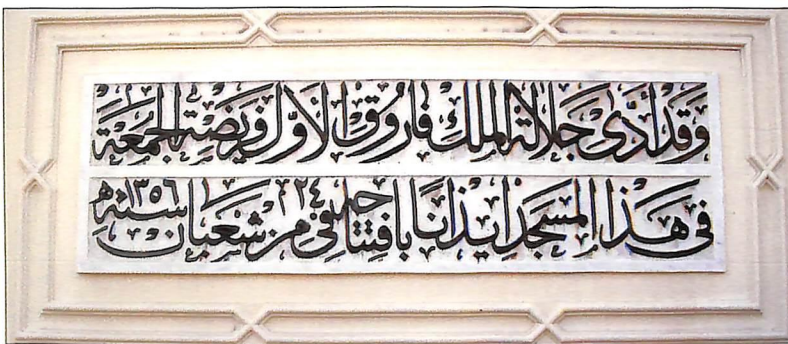 وَقَد أَدّى جَلالَة المَلِك فارُوق الأوّل فَريضَة الجُمعَة
فى هَذا المَسجِد ايذانًا بافتِتاحِه فى ٢٤ مِن شَعبَان سَنَة ١٣٥٦ هـ